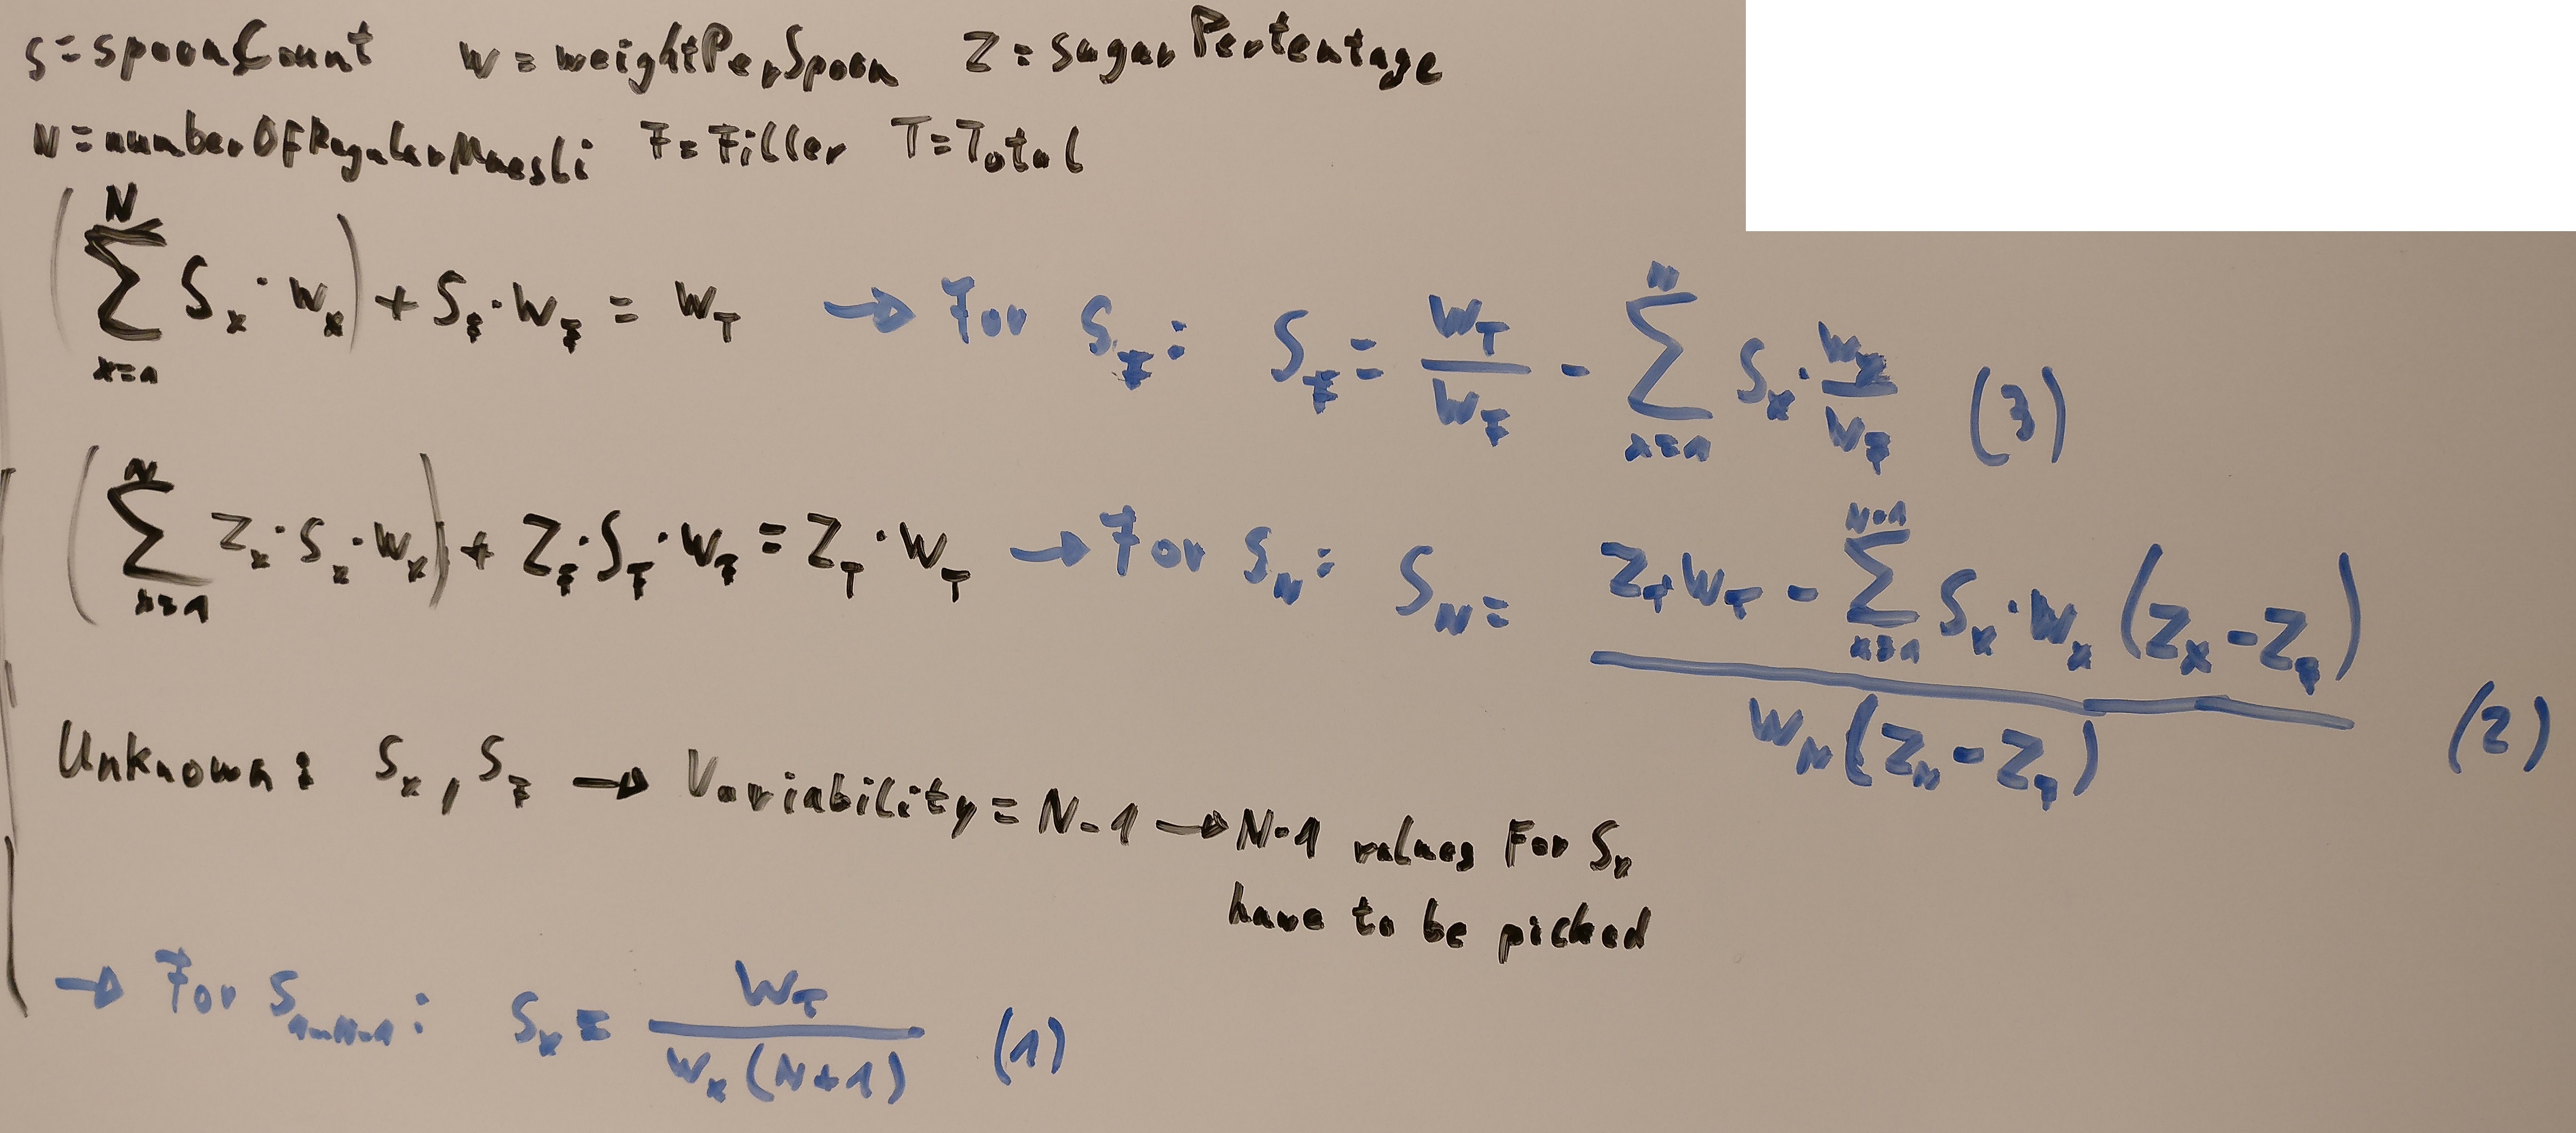 S = spoonCount w = weightPerSpoon Z = sugarPercentage
N = numberOfRegularMuesli F = Filler T = Total
(∑_{x=1}^{N} S_x · w_x) + S_F · w_F = w_T → For S_F: S_F = w_T / w_F - ∑_{x=1}^{N} S_x · w_x / w_F (3)
(∑_{x=1}^{N} Z_x · S_x · w_x) + Z_F · S_F · w_F = Z_T · w_T → For S_N: S_N = (Z_T w_T - ∑_{x=1}^{N-1} S_x · w_x (Z_x - Z_F)) / (w_N (Z_N - Z_F)) (2)
Unknown: S_x, S_F → Variability = N-1 → N-1 values For S_x
have to be picked
→ For S_{1-N-1}: S_x = w_T / (w_x (N+1)) (1)